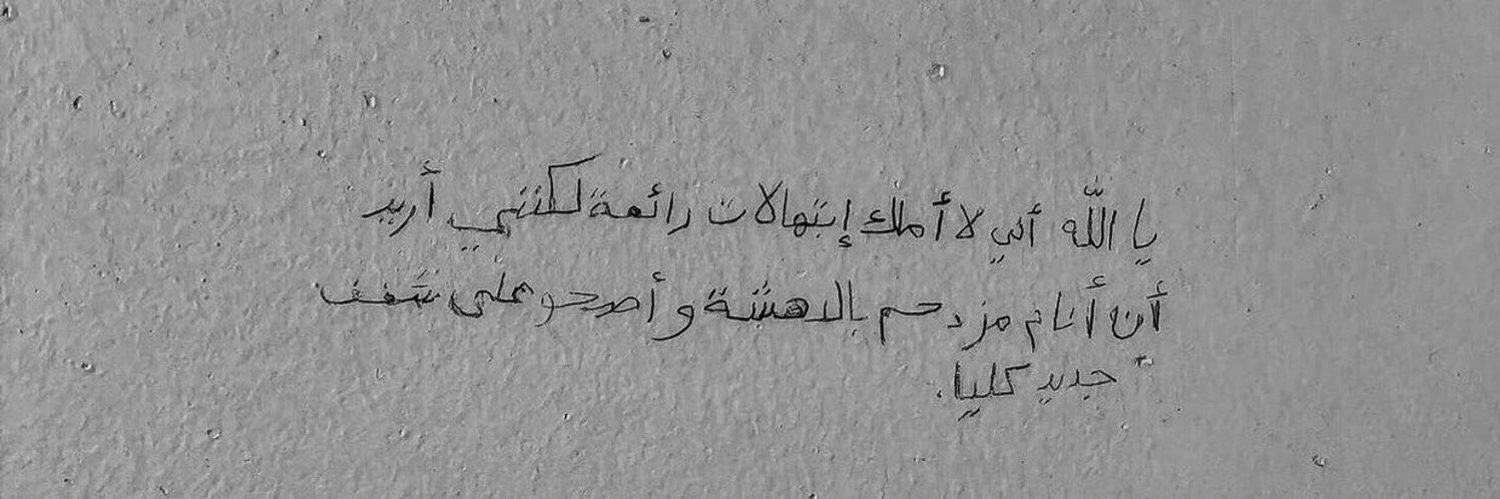 يا اللّه أني لا أملك إبتهالات رائعة لكنني أريد
أن أنام مزدحم بالدهشة وأصحو على شغف
جديد كليا.